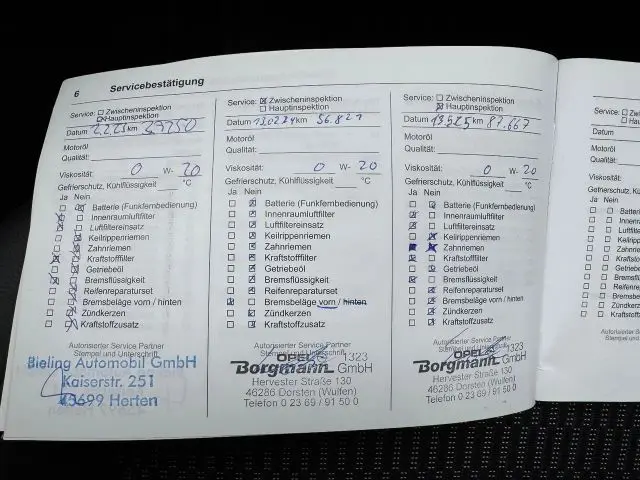 6
Servicebestätigung
Service: Zwischeninspektion
Hauptinspektion
Datum km
Motoröl
Qualität:
Viskosität: 0 W- 20
Gefrierschutz, Kühlflüssigkeit °C
Ja Nein
Batterie (Funkfernbedienung)
Innenraumluftfilter
Luftfiltereinsatz
Keilrippenriemen
Zahnriemen
Kraftstofffilter
Getriebeöl
Bremsflüssigkeit
Reifenreparaturset
Bremsbeläge vorn / hinten
Zündkerzen
Kraftstoffzusatz
Autorisierter Service Partner
Stempel und Unterschrift
Bieling Automobil GmbH
Kaiserstr. 251
45699 Herten
Service: Zwischeninspektion
Hauptinspektion
Datum 13.02.24 km 56.821
Motoröl
Qualität:
Viskosität: 0 W- 20
Gefrierschutz, Kühlflüssigkeit °C
Ja Nein
Batterie (Funkfernbedienung)
Innenraumluftfilter
Luftfiltereinsatz
Keilrippenriemen
Zahnriemen
Kraftstofffilter
Getriebeöl
Bremsflüssigkeit
Reifenreparaturset
Bremsbeläge vorn / hinten
Zündkerzen
Kraftstoffzusatz
Autorisierter Service Partner
Stempel und Unterschrift
OPEL 1323
Borgmann GmbH
Hervester Straße 130
46286 Dorsten (Wulfen)
Telefon 0 23 69 / 91 50 0
Service: Zwischeninspektion
Hauptinspektion
Datum km 87.667
Motoröl
Qualität:
Viskosität: 0 W- 20
Gefrierschutz, Kühlflüssigkeit °C
Ja Nein
Batterie (Funkfernbedienung)
Innenraumluftfilter
Luftfiltereinsatz
Keilrippenriemen
Zahnriemen
Kraftstofffilter
Getriebeöl
Bremsflüssigkeit
Reifenreparaturset
Bremsbeläge vorn / hinten
Zündkerzen
Kraftstoffzusatz
Autorisierter Service Partner
Stempel und Unterschrift
OPEL 1323
Borgmann GmbH
Hervester Straße 130
46286 Dorsten (Wulfen)
Telefon 0 23 69 / 91 50 0
Service:
Datum
Motoröl
Qualität:
Viskosität:
Gefrierschutz,
Ja Nein